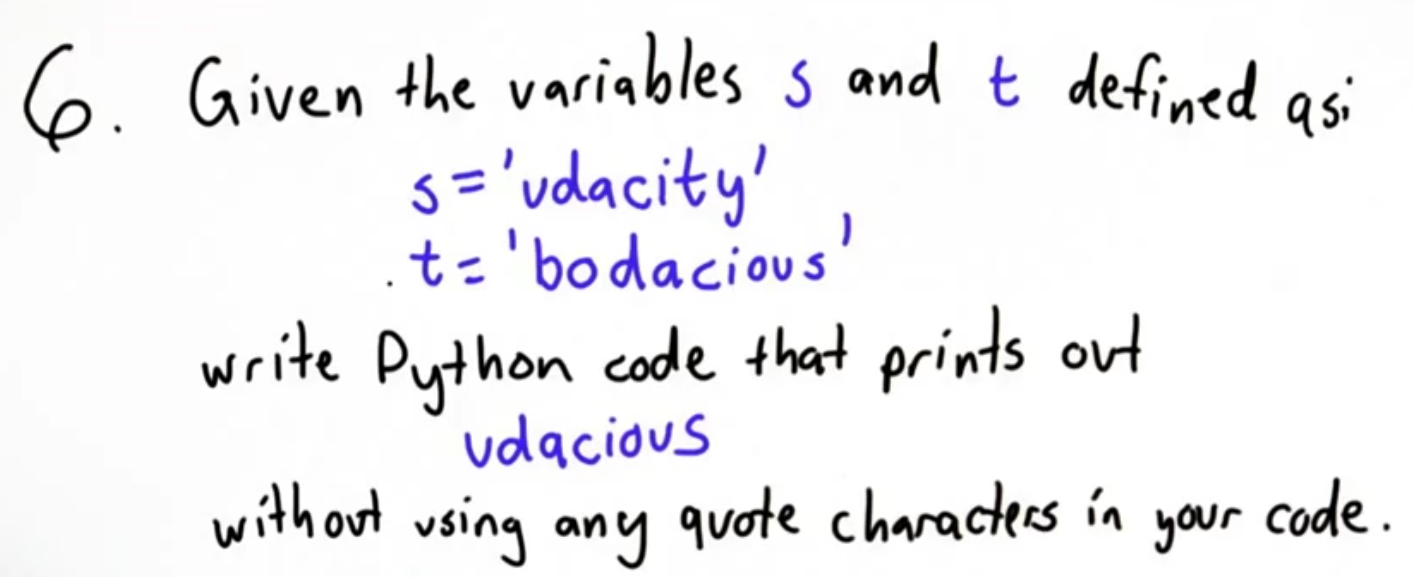 6. Given the variables s and t defined as:
s = 'udacity'
t = 'bodacious'
write Python code that prints out
udacious
without using any quote characters in your code.